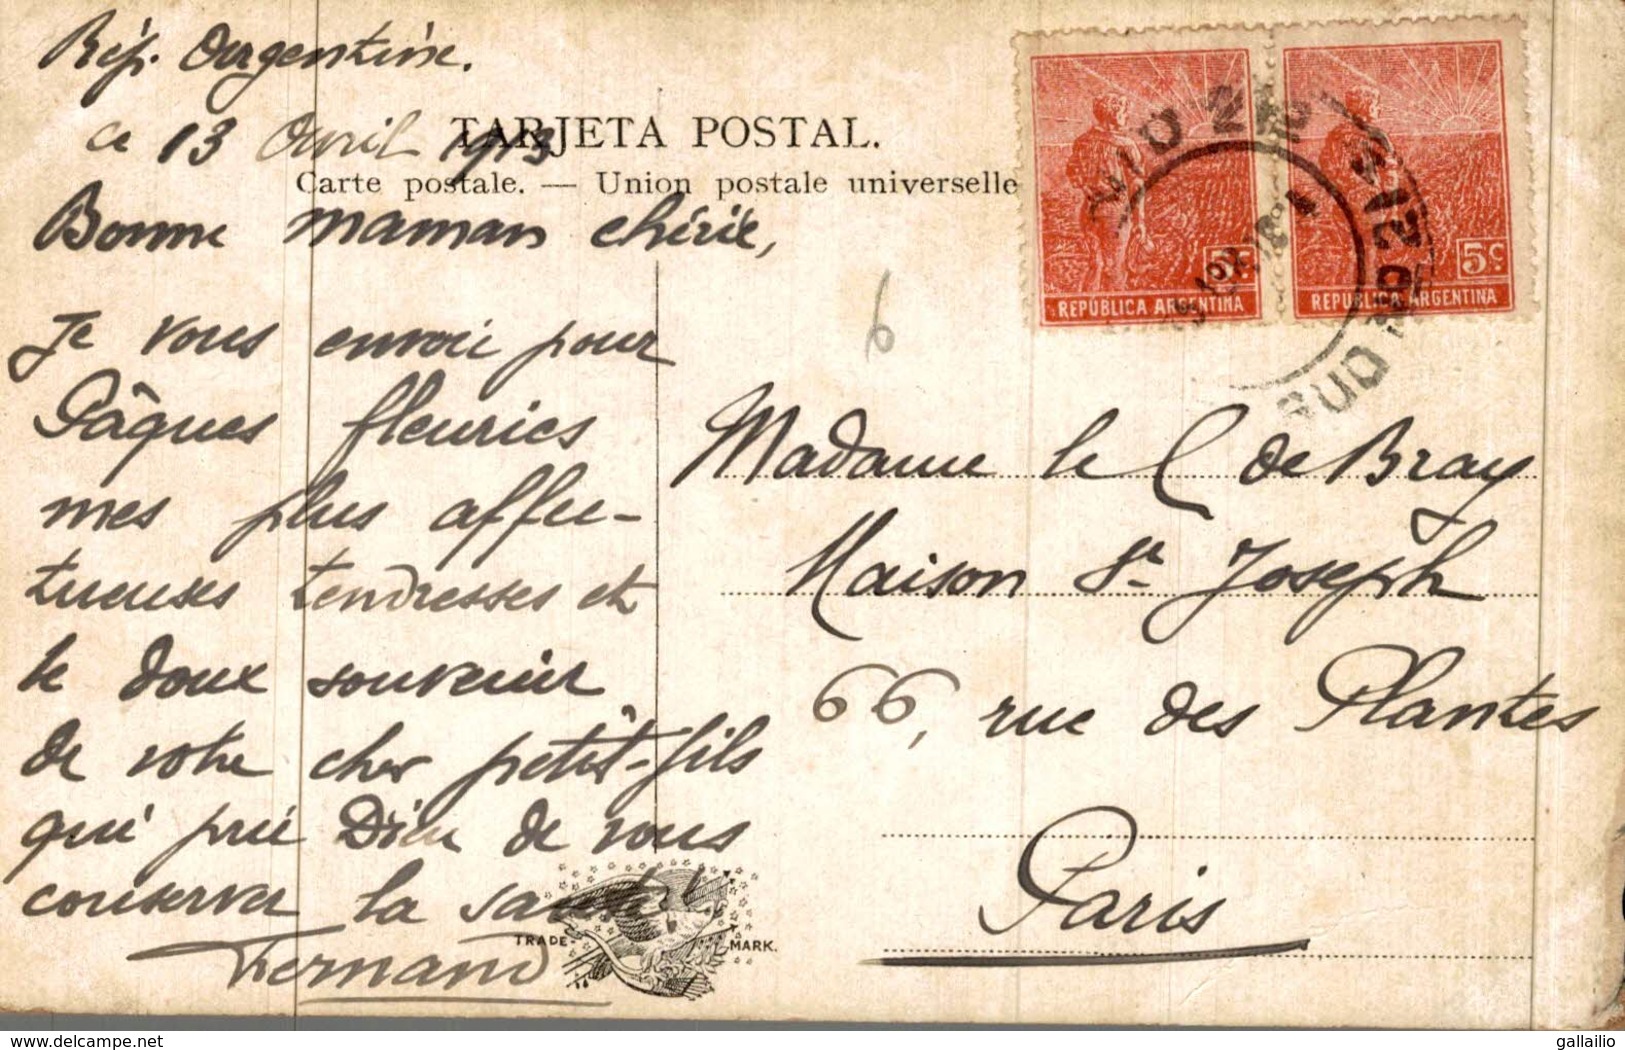 Rép. Argentine.
ce 13 Avril 1913
TARJETA POSTAL.
Carte postale. — Union postale universelle
Bonne maman chérie,
Je vous envoie pour
Pâques fleuries
mes plus affec-
tueuses tendresses et
le doux souvenir
de votre cher petit-fils
qui prie Dieu de vous
conserver la santé
Fernand
TRADE MARK.
6
5c
REPÚBLICA ARGENTINA
5c
REPUBLICA ARGENTINA
SUD
Madame le C de Bray
Maison St Joseph
66, rue des Plantes
Paris
delcampe.net
gallailio